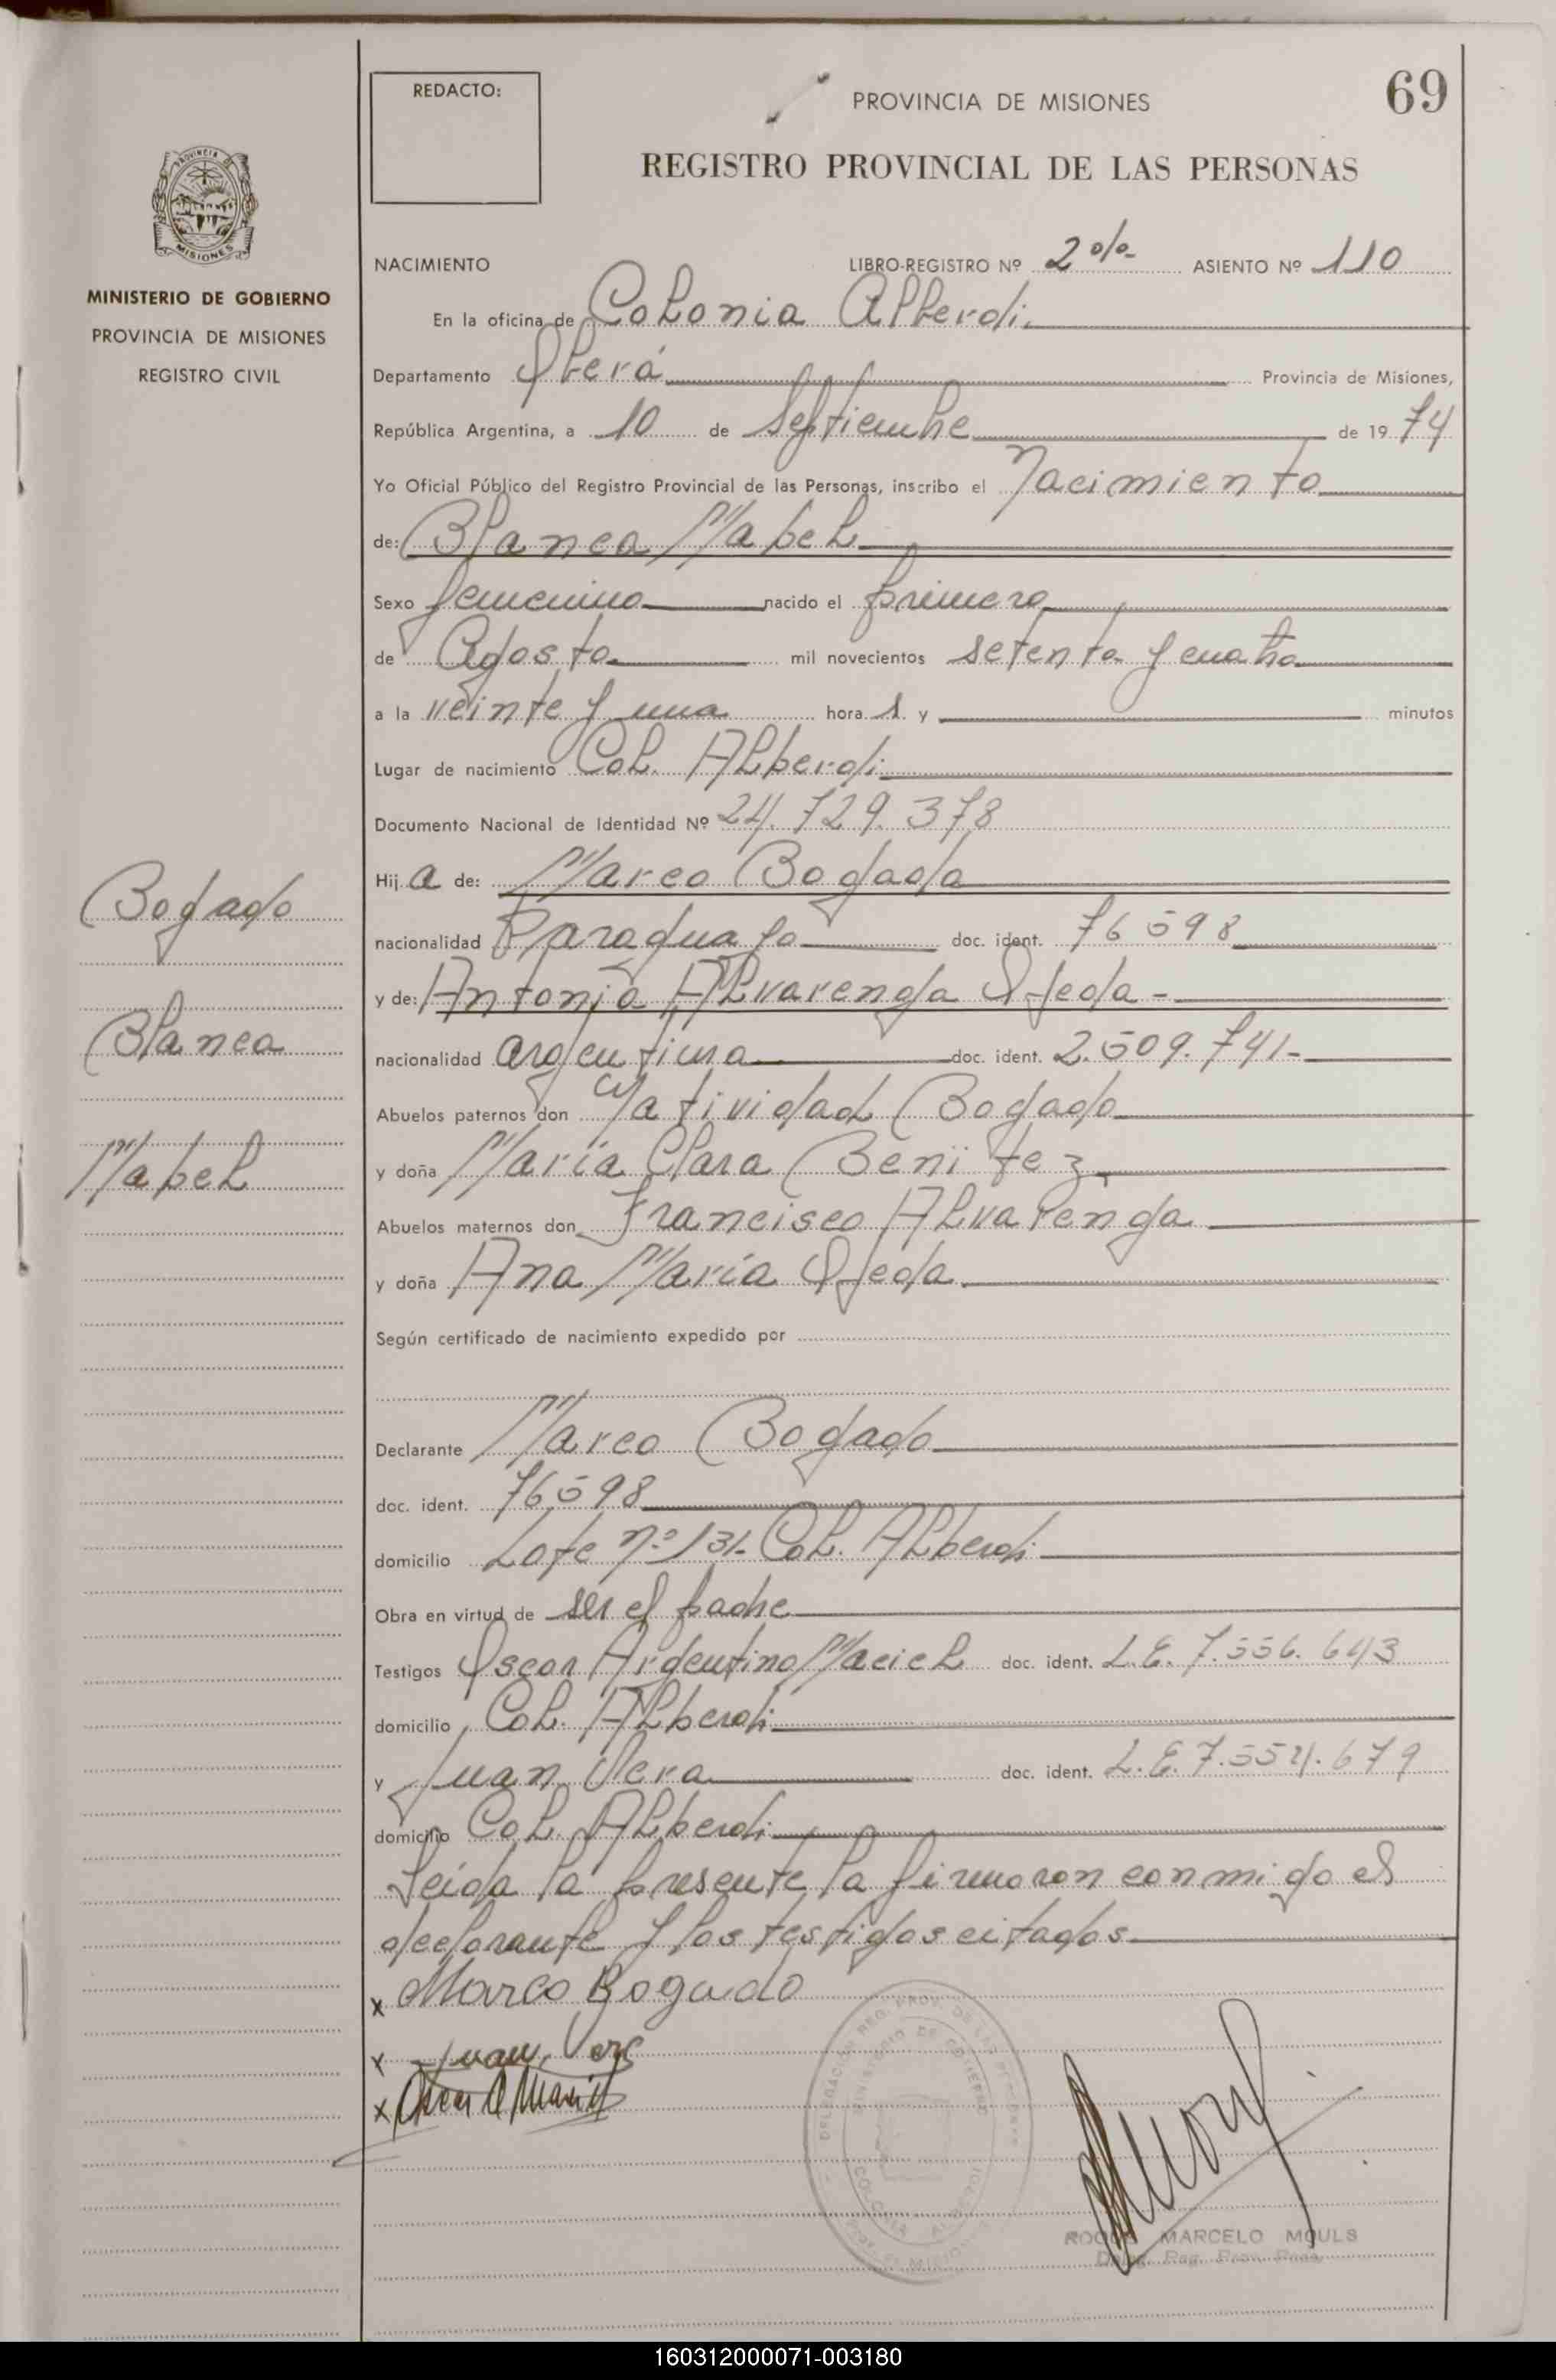 REDACTO:
PROVINCIA DE MISIONES
69
REGISTRO PROVINCIAL DE LAS PERSONAS
PROVINCIA DE
MISIONES
MINISTERIO DE GOBIERNO
PROVINCIA DE MISIONES
REGISTRO CIVIL
NACIMIENTO LIBRO-REGISTRO Nº 2º/º ASIENTO Nº 110
En la oficina de Colonia Alberdi
Departamento Oberá Provincia de Misiones,
República Argentina, a 10 de Septiembre de 1974
Yo Oficial Público del Registro Provincial de las Personas, inscribo el Nacimiento
de: Blanca Mabel
Sexo femenino nacido el primero
de Agosto mil novecientos setenta y cuatro
a la veinte y una hora s y minutos
Lugar de nacimiento Col. Alberdi
Documento Nacional de Identidad Nº 24.729.378
Hij a de: Marco Bogado
nacionalidad Paraguayo doc. ident. 76598
y de: Antonia Alvarenga Ojeda -
nacionalidad argentina doc. ident. 2.509.741-
Abuelos paternos don Natividad Bogado
y doña María Clara Benitez
Abuelos maternos don Francisco Alvarenga
y doña Ana María Ojeda
Según certificado de nacimiento expedido por
Declarante Marco Bogado
doc. ident. 76598
domicilio Lote nº 131- Col. Alberdi
Obra en virtud de ser el padre
Testigos Oscar Argentino Maciel doc. ident. L.E. 7.556.643
domicilio Col. Alberdi
y Juan Vera doc. ident. L.E. 7.554.679
domicilio Col. Alberdi
Leida la presente la firmaron conmigo el
declarante y los testigos citados
x Marco Bogado
x Juan Vera
x Oscar A Maciel
Bogado
Blanca
Mabel
DELEGACION REG. PROV. DE LAS PERSONAS
MINISTERIO DE GOBIERNO
COLONIA ALBERDI
MISIONES
ROQUE MARCELO MOULS
Deleg. Reg. Prov. Pers.
160312000071-003180